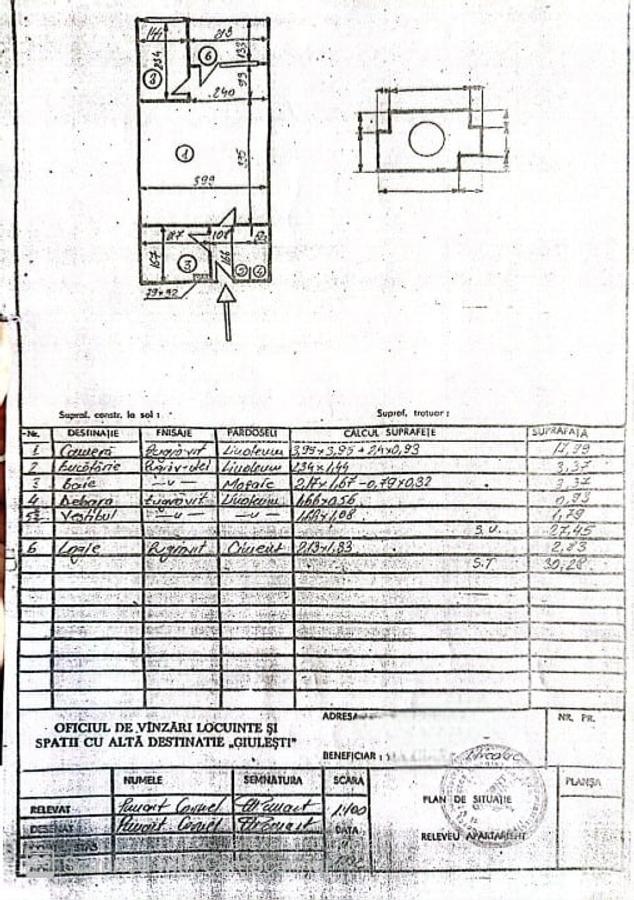 144 213
6
234 133
3 93
240
1
395
399
217 108
167 3 166
2 4
79×32
Supraf. constr. la sol : Supraf. trotuar :
Nr. DESTINAȚIE FINISAJE PARDOSELI CALCUL SUPRAFEȚE SUPRAFAȚA
1 Cameră Zugrăvit Linoleum 3,99×3,95 + 2,4×0,93 17,99
2 Bucătărie Linoleum 2,34×1,44 3,37
3 Baie —u— Mozaic 2,17×1,67 - 0,79×0,32 3,37
4 Debara Zugrăvit Linoleum 1,66×0,56 0,93
5 Vestibul —u— —u— 1,66×1,08 1,79
S.U. 27,45
6 Logie Zugrăvit Ciment 2,13×1,33 2,83
S.T 30,28
OFICIUL DE VÎNZĂRI LOCUINTE ȘI
SPATII CU ALTĂ DESTINATIE „GIULEȘTI”
ADRESA
NR. PR.
BENEFICIAR :
NUMELE SEMNATURA SCARA
PLAN DE SITUAȚIE
PLANȘA
RELEVAT 1:100
DESENAT DATA
RELEVEU APARTAMENT